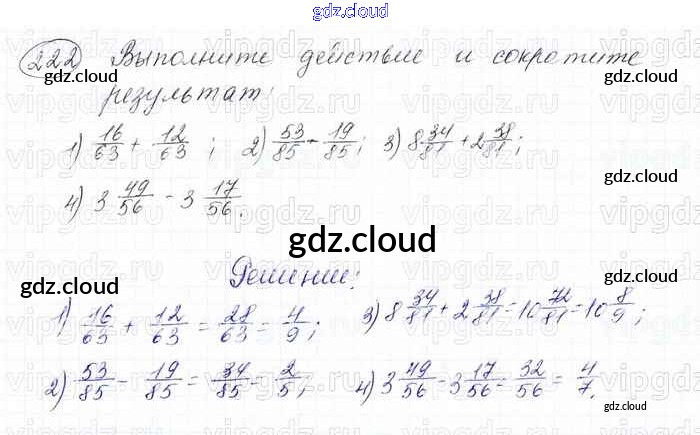 gdz.cloud
222 Выполните действие и сократите
gdz.cloud gdz.cloud
результат:
1) 16/63 + 12/63 ; 2) 53/85 - 19/85; 3) 8 34/81 + 2 38/81;
4) 3 49/56 - 3 17/56.
gdz.cloud
gdz.cloud
Решение:
gdz.cloud gdz.cloud
1) 16/63 + 12/63 = 28/63 = 4/9; 3) 8 34/81 + 2 38/81 = 10 72/81 = 10 8/9;
2) 53/85 - 19/85 = 34/85 = 2/5; 4) 3 49/56 - 3 17/56 = 32/56 = 4/7.
gdz.cloud gdz.cloud